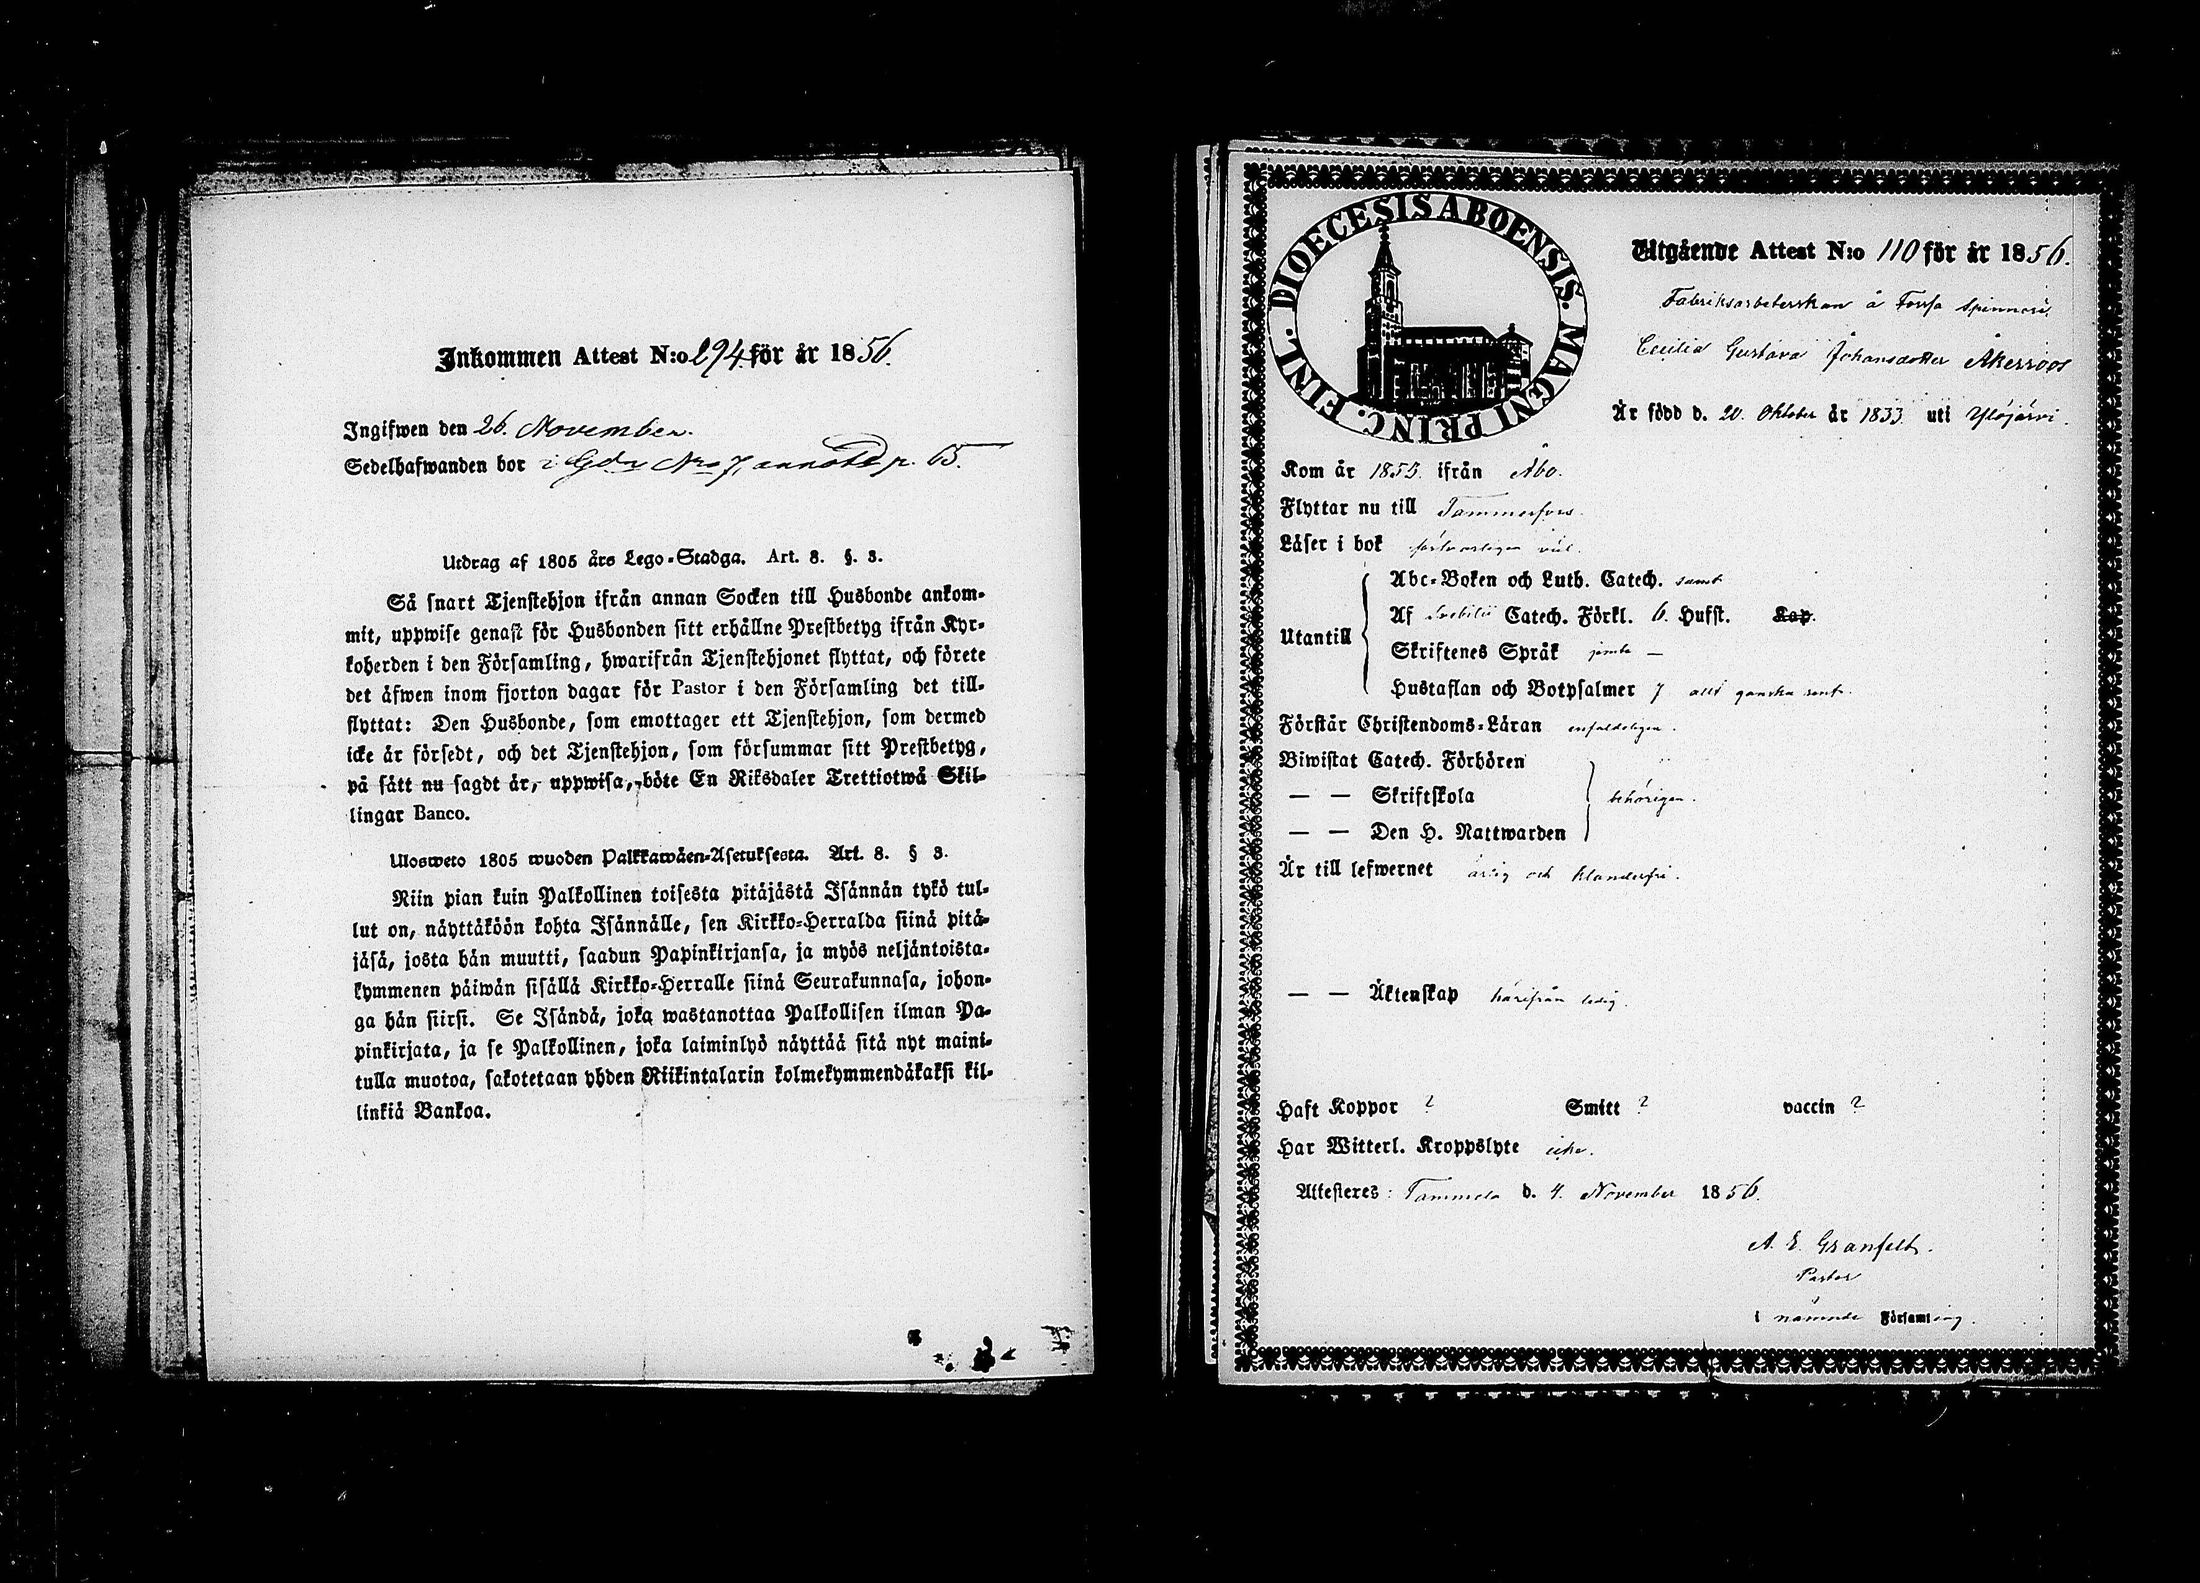 Inkommen Attest N:o 294. för år 1856.
Ingifwen den 26. November.
Sedelhafwanden bor i Gdn No 7, annoterd p. 65.
Utdrag af 1805 års Lego-Stadga. Art. 8. §. 3.
Så snart Tjenstehjon ifrån annan Socken till Husbonde ankom-
mit, uppwise genast för Husbonden sitt erhållne Prestbetyg ifrån Kyr-
koherden i den Församling, hwarifrån Tjenstehjonet flyttat, och förete
det äfwen inom fjorton dagar för Pastor i den Församling det till-
flyttat: Den Husbonde, som emottager ett Tjenstehjon, som dermed
icke är försedt, och det Tjenstehjon, som försummar sitt Prestbetyg,
på sätt nu sagdt är, uppwisa, böte En Riksdaler Trettiotwå Skil-
lingar Banco.
Ulosweto 1805 wuoden Palkkawäen-Asetuksesta. Art. 8. § 3.
Niin pian kuin Palkollinen toisesta pitäjästä Isännän tykö tul-
lut on, näyttäköön kohta Isännälle, sen Kirkko-Herralda siinä pitä-
jäsä, josta hän muutti, saadun Papinkirjansa, ja myös neljäntoista-
kymmenen päiwän sisällä Kirkko-Herralle siinä Seurakunnasa, johon-
ga hän siirsi. Se Isändä, joka wastanottaa Palkollisen ilman Pa-
pinkirjata, ja se Palkollinen, joka laiminlyö näyttää sitä nyt maini-
tulla muotoa, sakotetaan yhden Riikintalarin kolmekymmendäkaksi kil-
linkiä Bankoa.
DIOECESIS ABOENSIS. MAGNI PRINC. FINL.
Utgående Attest N:o 110 för år 1856.
Fabriksarbeterskan å Forssa Spinneri,
Cecilia Gustava Johansdotter Åkerroos
Är född d. 20. Oktober år 1833. uti Ylöjärvi.
Kom år 1855. ifrån Åbo.
Flyttar nu till Tammerfors.
Läser i bok försvarligen väl.
Abc-Boken och Luth. Catech. samt
Af Svebilii Catech. Förkl. 6. Hufst. Kap.
Utantill
Skriftenes Språk jemte —
Hustaflan och Botpsalmer 7 allt ganska rent.
Förstår Christendoms-Läran enfaldeligen.
Biwistat Catech. Förhören
— — Skriftskola behörigen.
— — Den H. Nattwarden
Är till lefwernet ärlig och klanderfri.
— — Äktenskap härifrån ledig.
Haft Koppor ? Smitt ? vaccin ?
Har Witterl. Kroppslyte icke.
Attesteres: Tammela d. 4. November 1856.
A. E. Granfelt.
Pastor
i nämnde Församling.